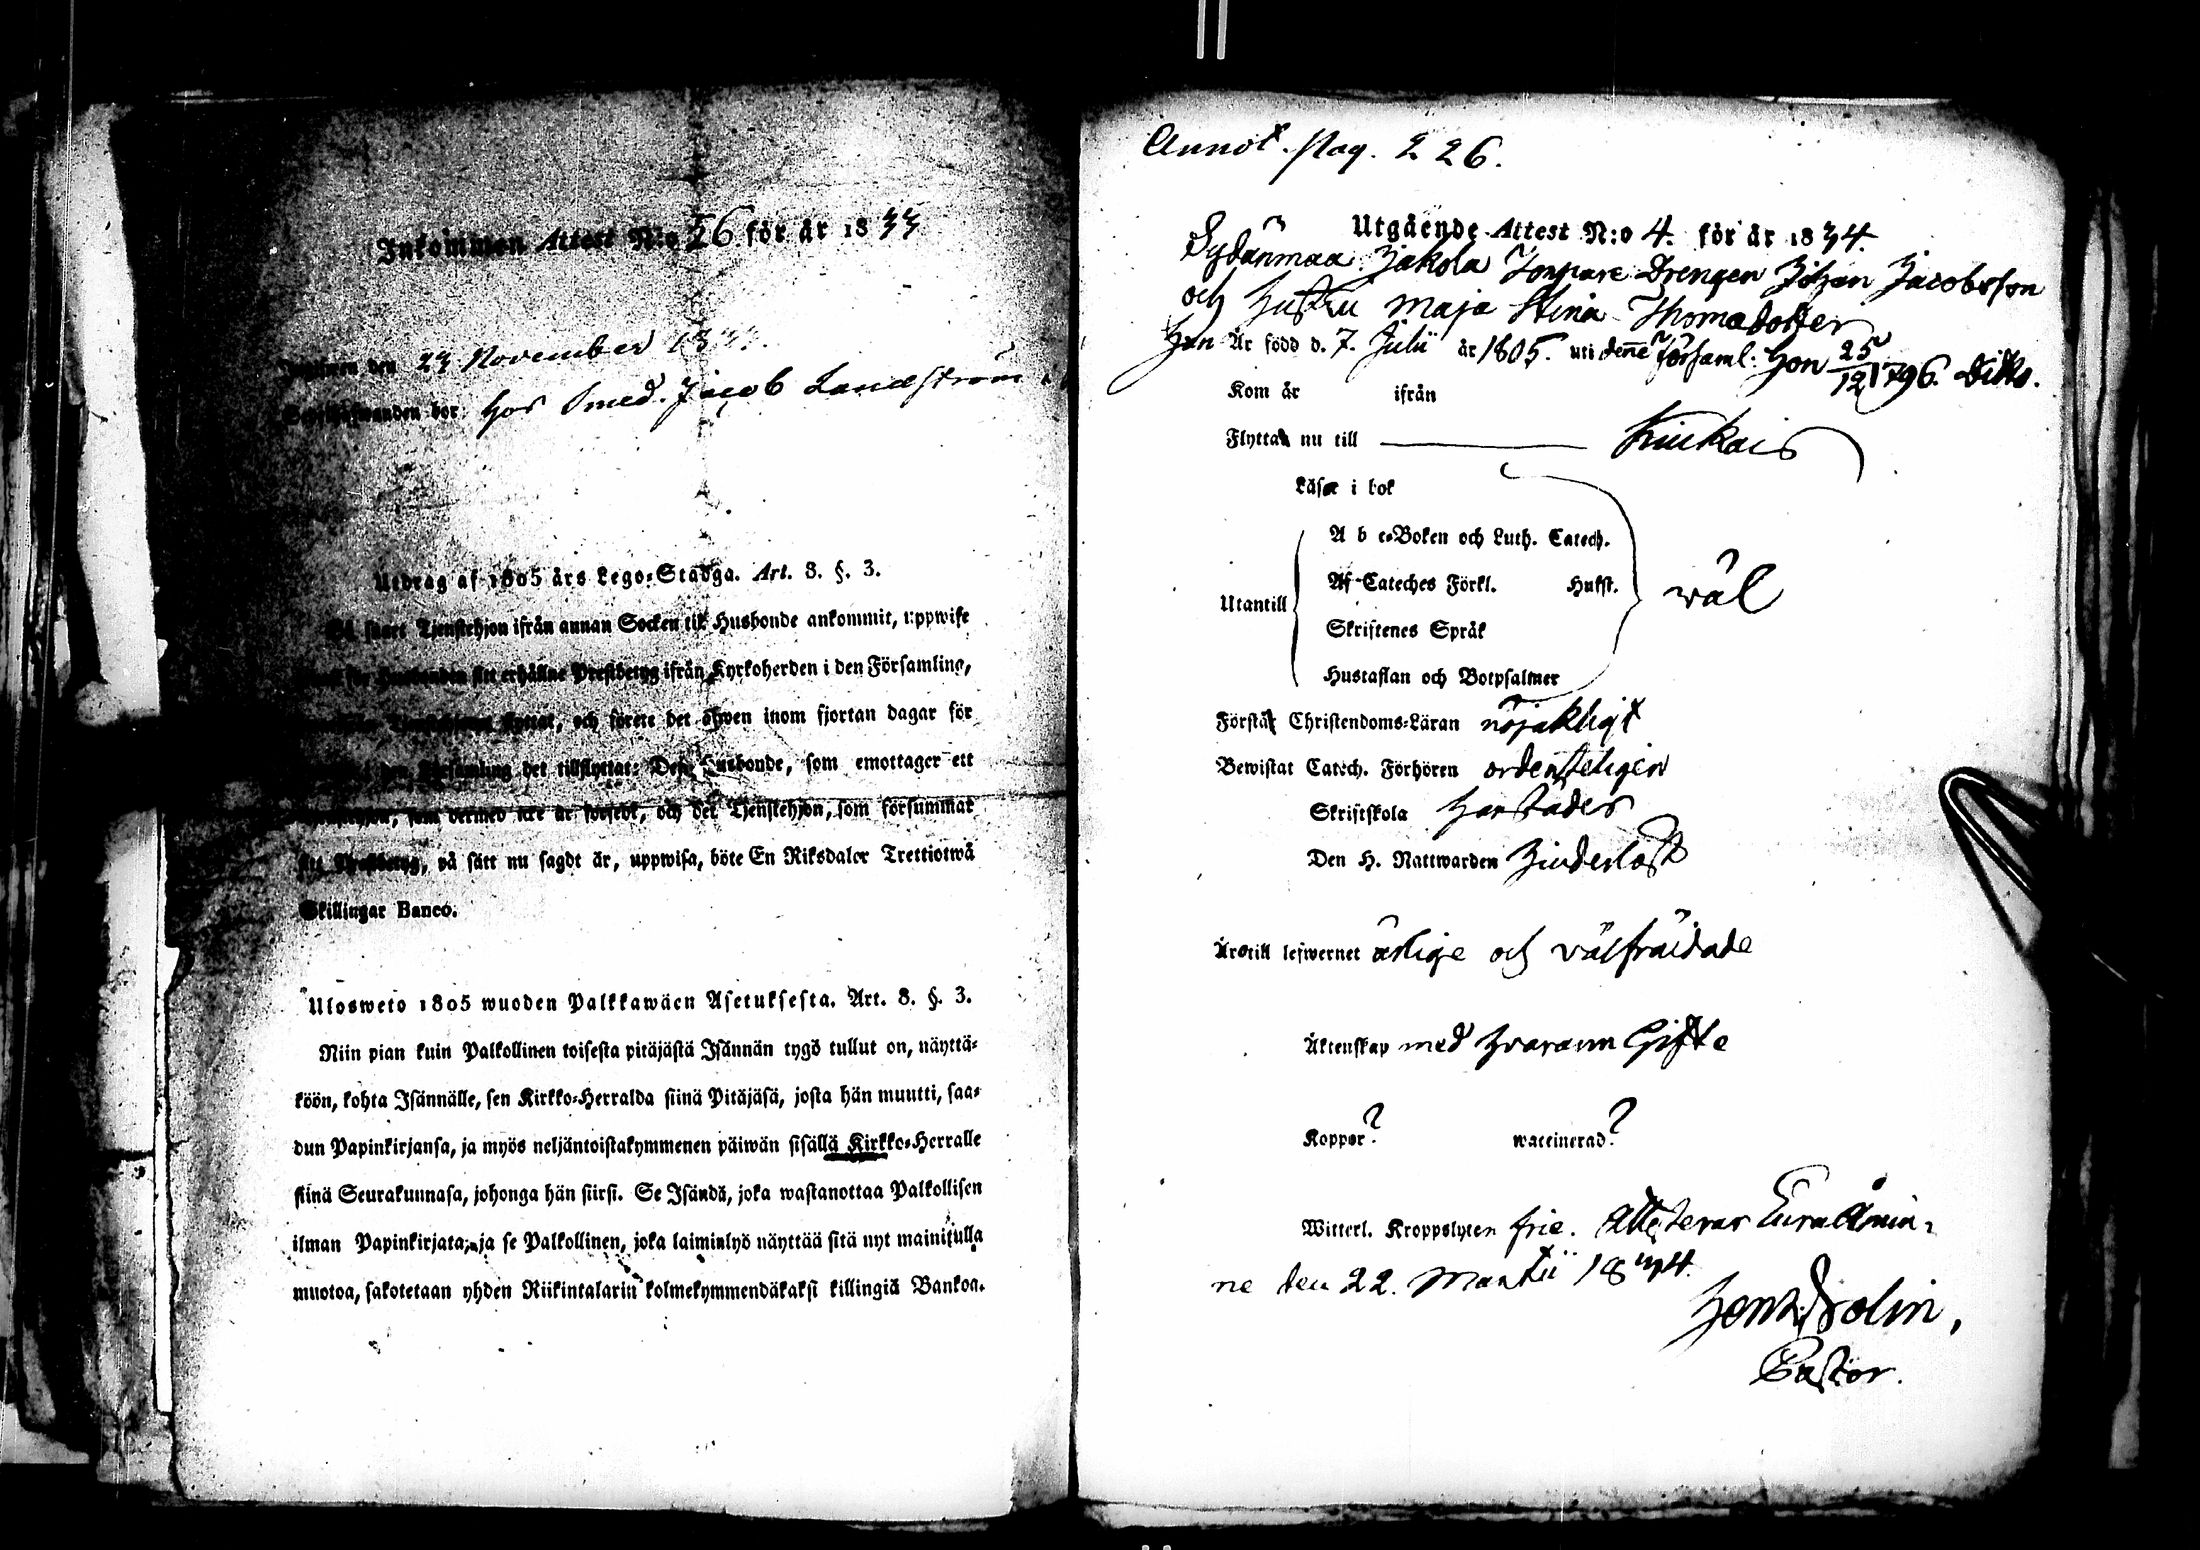 Inkommen Attest N:o 26 för år 1833
den 23 November 183
bor: hos Smed. Jacob Landström
Utdrag af 1805 års Lego-Stadga. Art. 8. §. 3.
Så snart Tjenstehjon ifrån annan Socken till Husbonde ankommit, uppwise
för Husbonden sitt erhållne Prestbetyg ifrån Kyrkoherden i den Församling,
flyttat, och förete det äfwen inom fjortan dagar för
Församling det tillflyttat. Den Husbonde, som emottager ett
Tjenstehjon, som dermed icke är försedt, och det Tjenstehjon, som försummar
sitt Prestbetyg, på sätt nu sagdt är, uppwisa, böte En Riksdaler Trettiotwå
Skillingar Banco.
Ulosweto 1805 wuoden Palkkawäen Asetuksesta. Art. 8. §. 3.
Niin pian kuin Palkollinen toisesta pitäjästä Isännän tygö tullut on, näyttä-
köön, kohta Isännälle, sen Kirkko-Herralda siinä Pitäjäsä, josta hän muutti, saa-
dun Papinkirjansa, ja myös neljäntoistakymmenen päiwän sisällä Kirkko-Herralle
siinä Seurakunnasa, johonga hän siirsi. Se Isändä, joka wastanottaa Palkollisen
ilman Papinkirjata, ja se Palkollinen, joka laiminlyö näyttää sitä nyt mainitulla
muotoa, sakotetaan yhden Riikintalarin kolmekymmendäkaksi killingiä Bankoa.
Annot. Pag. 226.
Utgående Attest N:o 4. för år 1834.
Sydänmaa Jakola Drengen Johan Jacobsson
och hustru Maja Stina Thomadotter
Han Är född d. 7. Julii år 1805. uti denne Församl. Hon 25/12 1796. ditto.
Kom år ifrån
Flytta nu till Kiukais
Läsa i bok
A b c-Boken och Luth. Catech.
Af Cateches Förkl. Husst.
Utantill wäl
Skriftenes Språk
Hustaflan och Botpsalmer
Förstå Christendoms-Läran nöjakligt
Bewistat Catech. Förhören ordenteligen
Skriftskola
Den H. Nattwarden
Äro till lefwernet ärlige och wälfräidade
Äktenskap med hvarann Gifte
Koppor? waccinerad?
Witterl. Kroppslyten frie. Attesterar Eura Åmin-
ne den 22. Martii 1834.
Pastor.